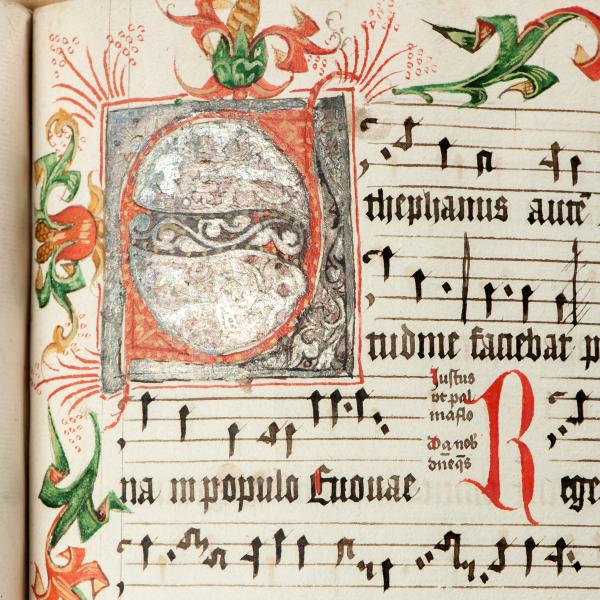 Sthephanus autē
tudine faciebat p
Justus
ut pal
ma flo
Da nob
dnē qs
na in populo Euouae R ege